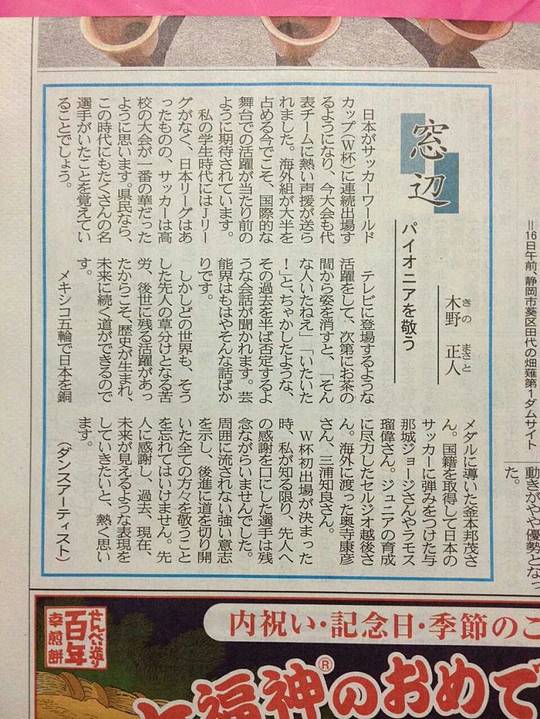 ＝16日午前、静岡市葵区田代の畑薙第1ダムサイト
動きがやや優勢となっ
た。
窓辺
パイオニアを敬う
木野 正人
きの まさと
日本がサッカーワールド
カップ(W杯)に連続出場す
るようになり、今大会も代
表チームに熱い声援が送ら
れました。海外組が大半を
占める今でこそ、国際的な
舞台での活躍が当たり前の
ように期待されています。
私の学生時代にはJリー
グがなく、日本リーグはあ
ったものの、サッカーは高
校の大会が一番の華だった
ように思います。県民なら、
この時代にもたくさんの名
選手がいたことを覚えてい
ることでしょう。
テレビに登場するような
活躍をして、次第にお茶の
間から姿を消すと、「そん
な人いたねえ」「いたいた
!」と、ちゃかしたような、
その過去を半ば否定するよ
うな会話が聞かれます。芸
能界はもはやそんな話ばか
りです。
しかしどの世界も、そう
した先人の草分けとなる苦
労、後世に残る活躍があっ
たからこそ、歴史が生まれ、
未来に続く道ができるので
メキシコ五輪で日本を銅
メダルに導いた釜本邦茂さ
ん。国籍を取得して日本の
サッカーに弾みをつけた与
那城ジョージさんやラモス
瑠偉さん。ジュニアの育成
に尽力したセルジオ越後さ
ん。海外に渡った奥寺康彦
さん、三浦知良さん。
W杯初出場が決まった
時、私が知る限り、先人へ
の感謝を口にした選手は残
念ながらいませんでした。
周囲に流されない強い意志
を示し、後進に道を切り開
いた全ての方々を敬うこと
を忘れてはいけません。先
人に感謝し、過去、現在、
未来が見えるような表現を
していきたいと、熱く思い
ます。
(ダンスアーティスト)
せんべい造り
百年
幸煎餅
内祝い・記念日・季節のご
七福神®のおめで